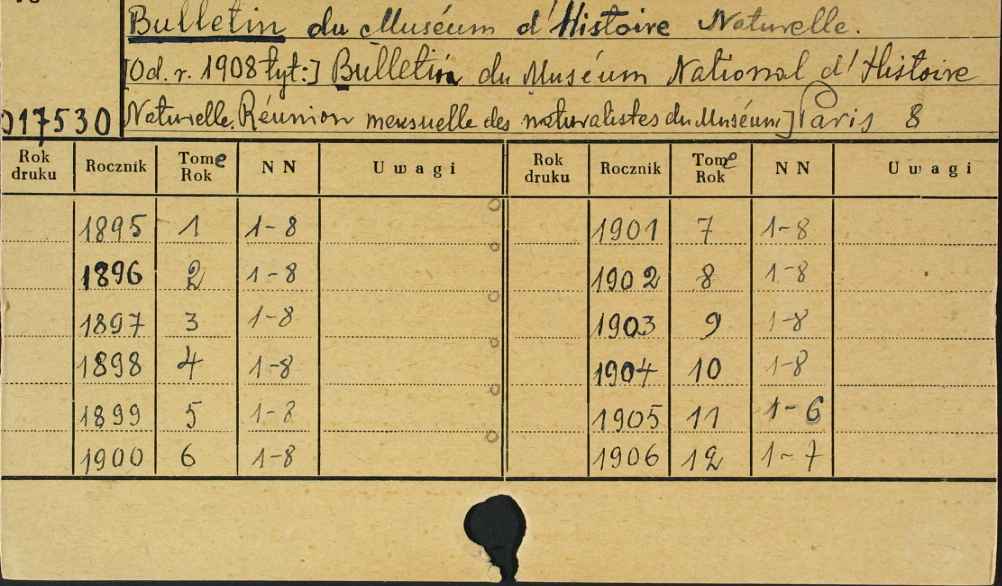 Bulletin du Muséum d'Histoire Naturelle.
[Od. r. 1908 tyt:] Bulletin du Muséum National d'Histoire
017530 Naturelle. Réunion mensuelle des naturalistes du Muséum] Paris 8
Rok druku Rocznik Tome Rok NN Uwagi Rok druku Rocznik Tome Rok NN Uwagi
1895 1 1-8 1901 7 1-8
1896 2 1-8 1902 8 1-8
1897 3 1-8 1903 9 1-8
1898 4 1-8 1904 10 1-8
1899 5 1-8 1905 11 1-6
1900 6 1-8 1906 12 1-7